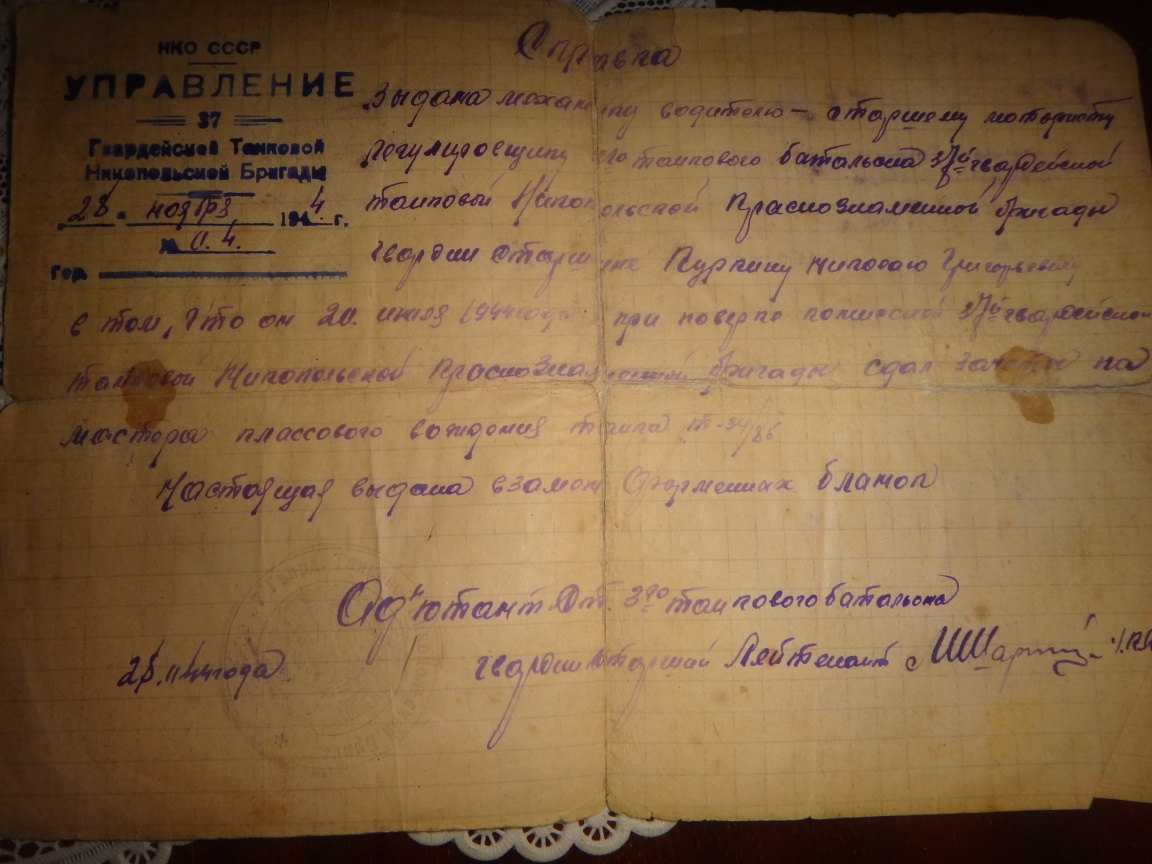 НКО СССР
УПРАВЛЕНИЕ
37
Гвардейской Танковой
Никопольской Бригады
28 " ноября 1944 г.
№ 0.4.
гор.
Справка
Выдана механику водителю – старшему мотористу
регулировщику 3го танкового батальона 37й гвардейской
танковой Никопольской Краснознаменной бригады
гвардии старшине Куркину Николаю Григорьевичу
в том, что он 20. июля 1944 года при поверке комиссией 37й гвардейской
танковой Никопольской Краснознаменной бригады сдал зачеты на
мастера классового вождения танка Т-34/85
Настоящая выдана взамен форменных бланок
Ад"ютант Ст. 3го танкового батальона
28.11.44 года гвардии Старший Лейтенант